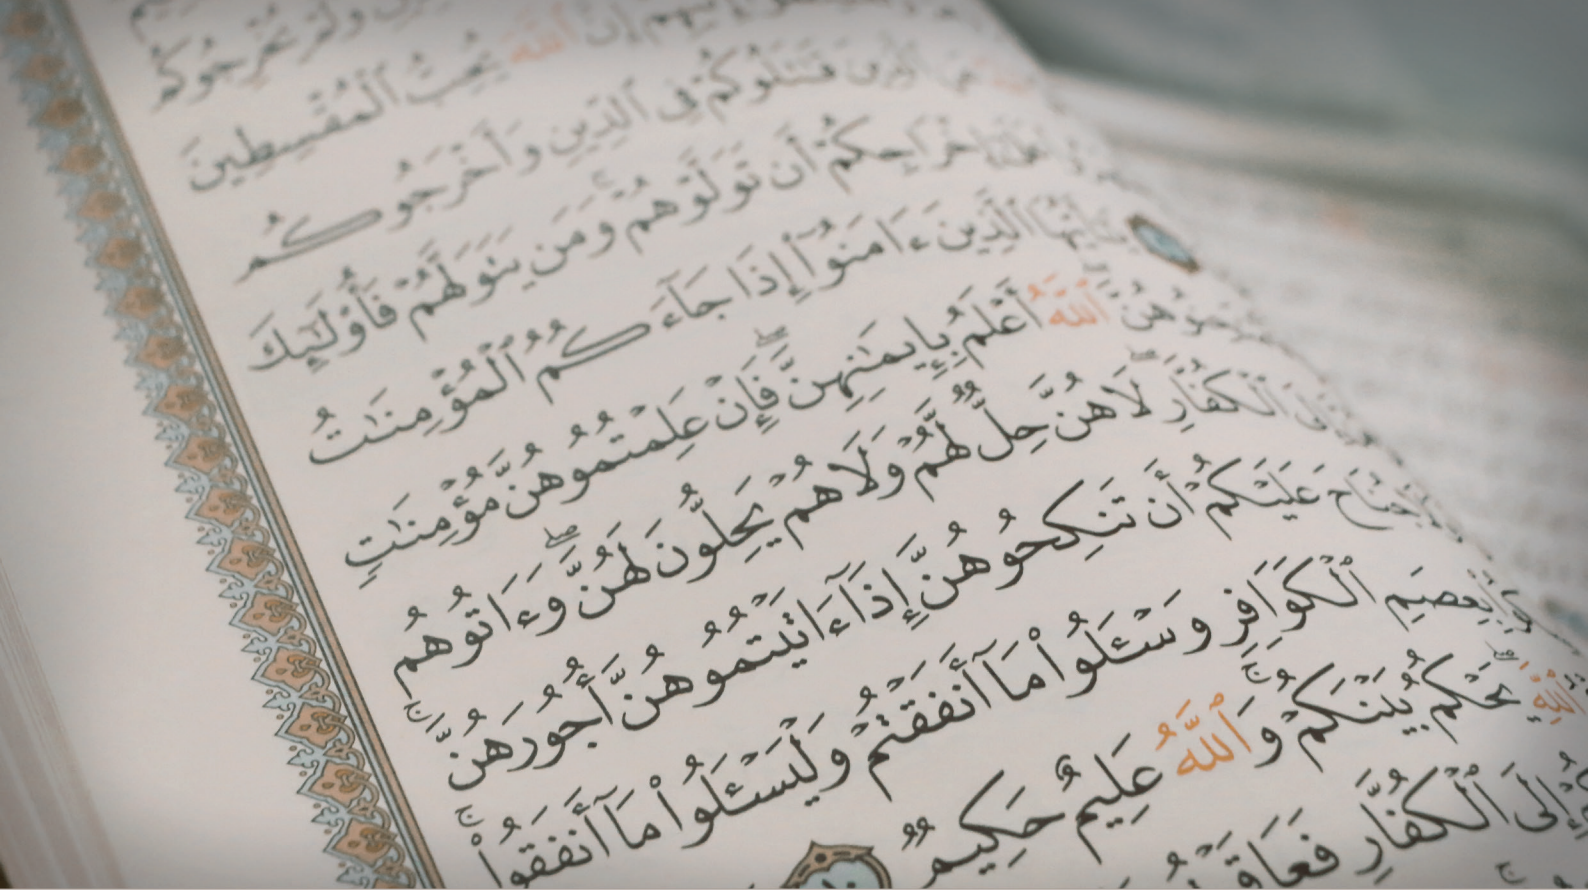 وَلَمْ يُخْرِجُوكُم
إِنَّ ٱللَّهَ يُحِبُّ ٱلْمُقْسِطِينَ
ٱلَّذِينَ قَٰتَلُوكُمْ فِى ٱلدِّينِ وَأَخْرَجُوكُم
إِخْرَاجِكُمْ أَن تَوَلَّوْهُمْ ۚ وَمَن يَتَوَلَّهُمْ فَأُو۟لَٰٓئِكَ
يَٰٓأَيُّهَا ٱلَّذِينَ ءَامَنُوٓا۟ إِذَا جَآءَكُمُ ٱلْمُؤْمِنَٰتُ
ٱللَّهُ أَعْلَمُ بِإِيمَٰنِهِنَّ ۖ فَإِنْ عَلِمْتُمُوهُنَّ مُؤْمِنَٰتٍ
ٱلْكُفَّارِ ۖ لَا هُنَّ حِلٌّ لَّهُمْ وَلَا هُمْ يَحِلُّونَ لَهُنَّ ۖ وَءَاتُوهُم
جُنَاحَ عَلَيْكُمْ أَن تَنكِحُوهُنَّ إِذَآ ءَاتَيْتُمُوهُنَّ أُجُورَهُنَّ ۚ
بِعِصَمِ ٱلْكَوَافِرِ وَسْـَٔلُوا۟ مَآ أَنفَقْتُمْ وَلْيَسْـَٔلُوا۟ مَآ أَنفَقُوا۟ ۚ
ٱللَّهِ ۖ يَحْكُمُ بَيْنَكُمْ ۚ وَٱللَّهُ عَلِيمٌ حَكِيمٌ
إِلَى ٱلْكُفَّارِ